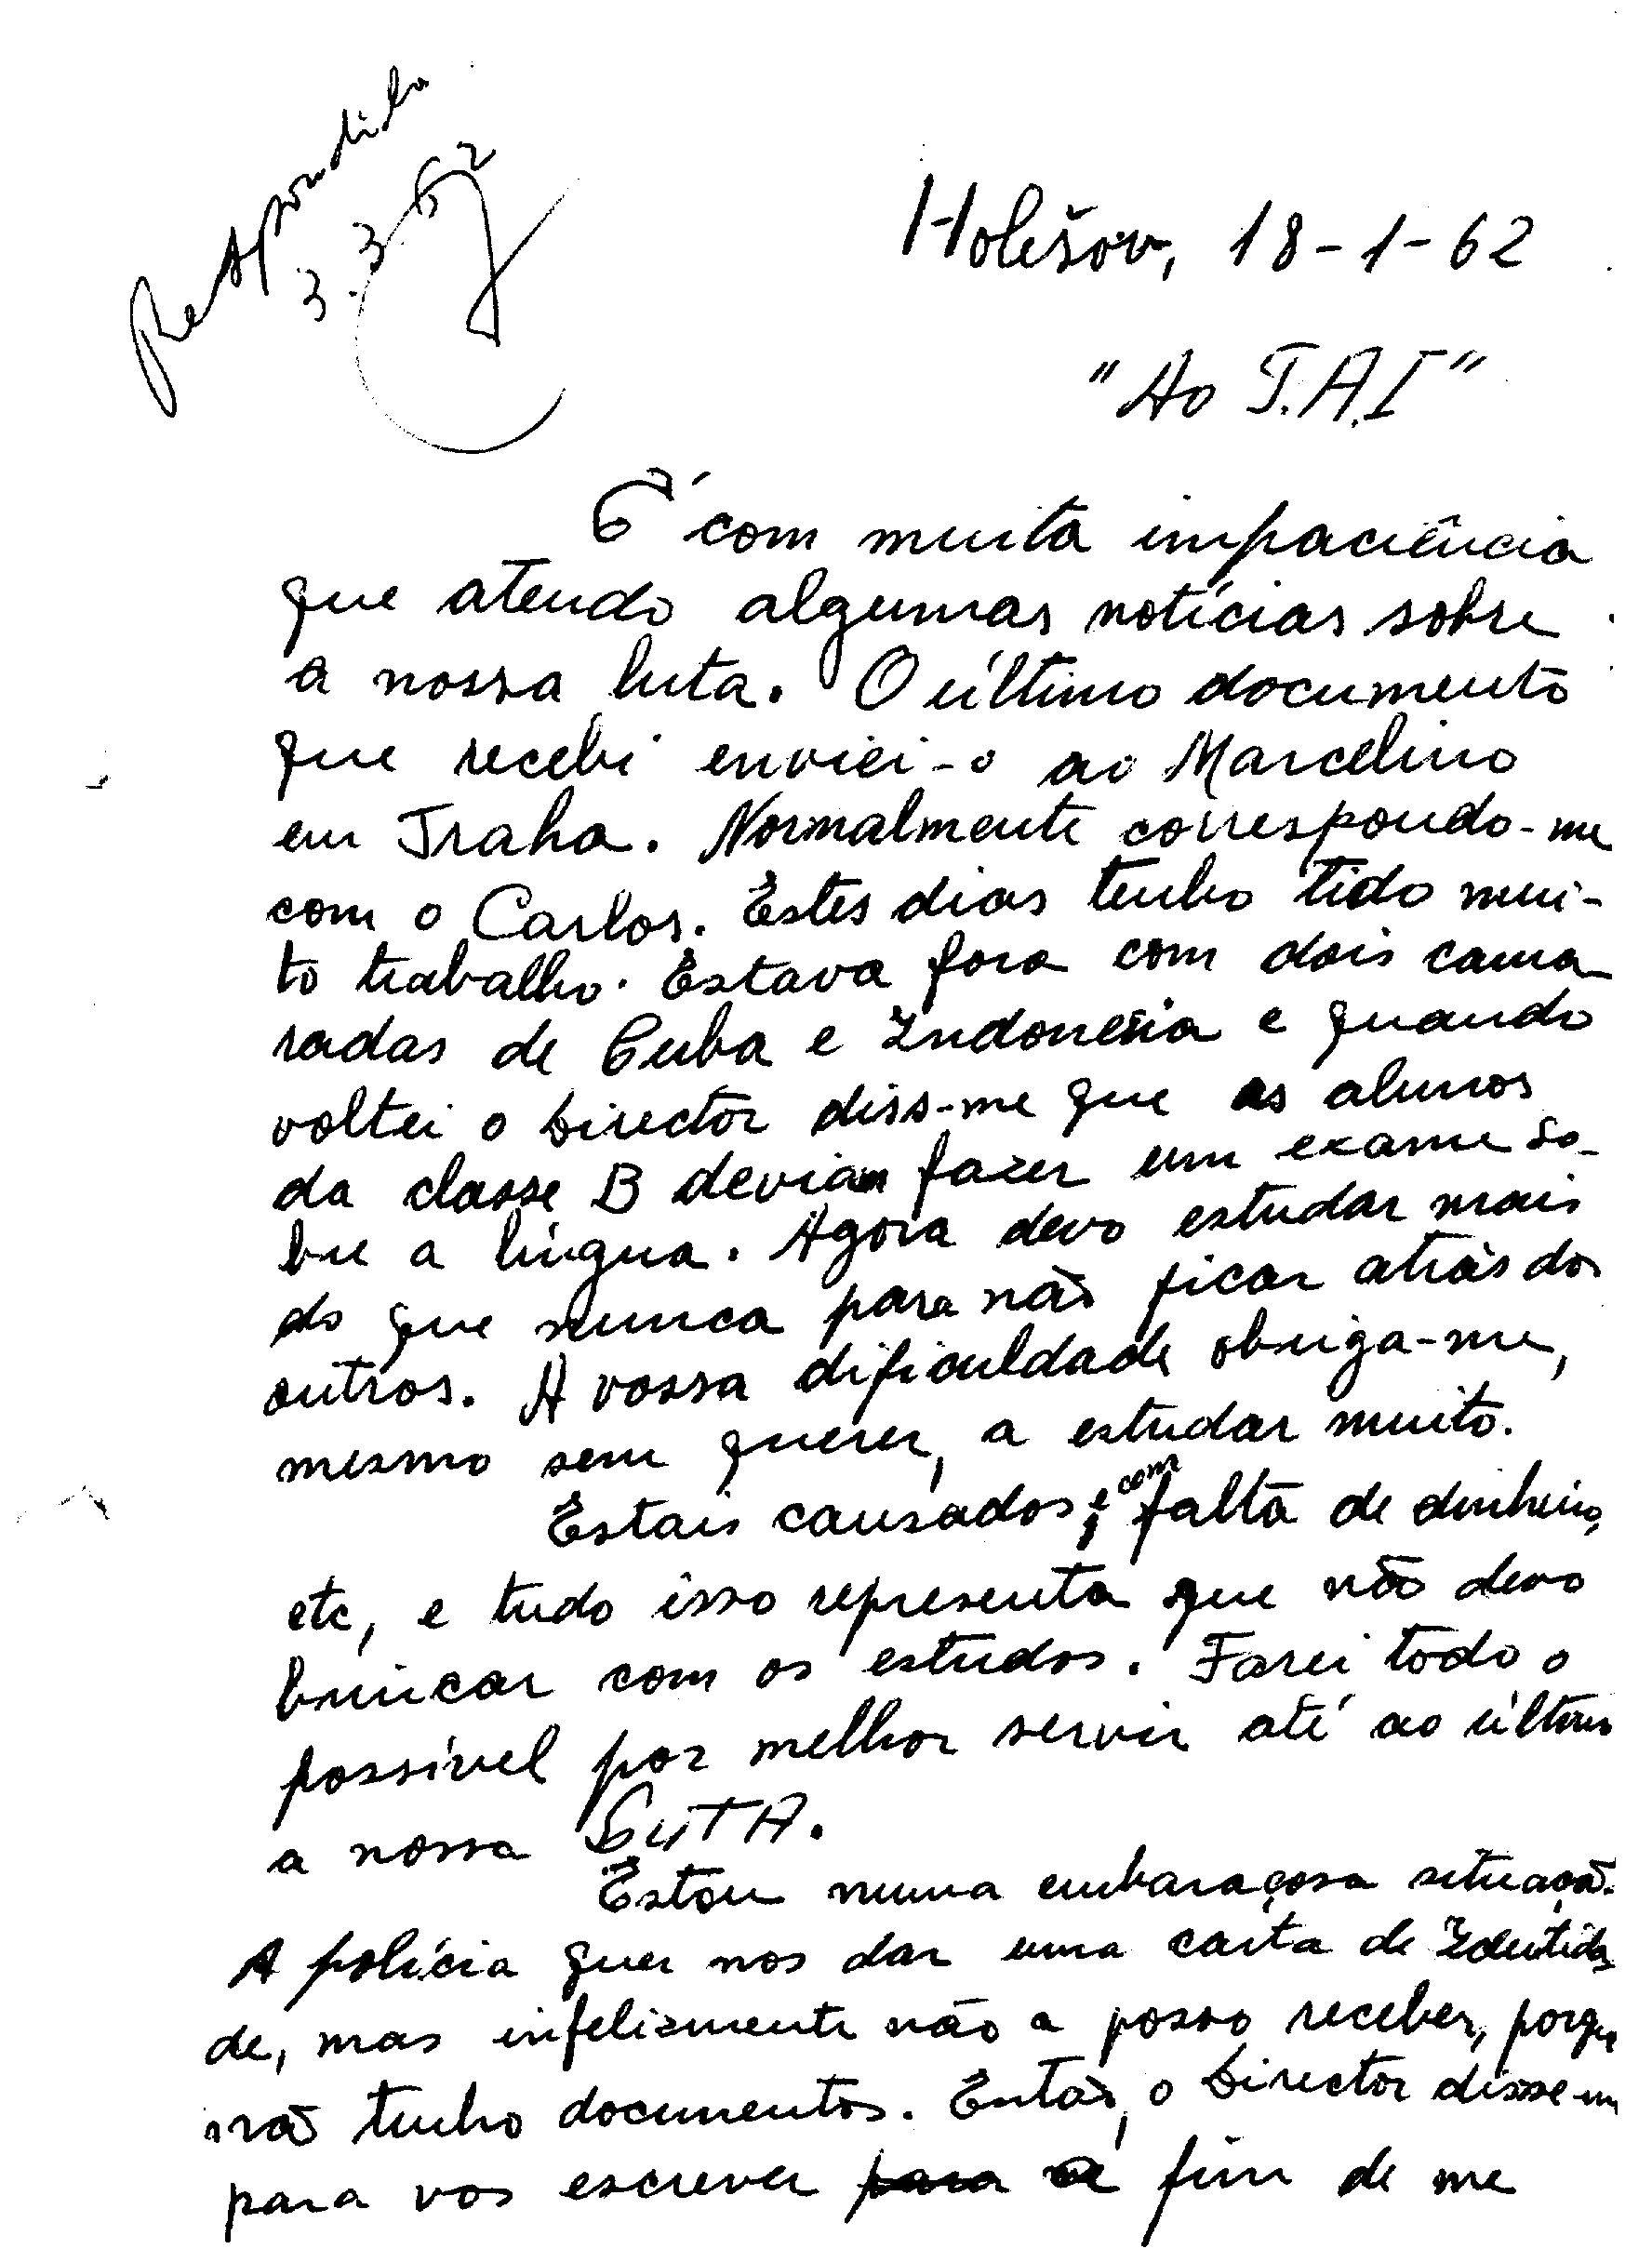 Respondida
3.3.62
Holešov, 18-1-62
"Ao T.A.I"
É com muita impaciência
que atendo algumas notícias sobre
a nossa luta. O último documento
que recebi enviei-o ao Marcelino
em Praha. Normalmente correspondo-me
com o Carlos. Estes dias tenho tido mui-
to trabalho. Estava fora com dois cama-
radas de Cuba e Indonesia e quando
voltei o Director diss-me que os alunos
da classe B deviam fazer um exame so-
bre a língua. Agora devo estudar mais
do que nunca para não ficar atrás dos
outros. A vossa dificuldade obriga-me,
mesmo sem querer, a estudar muito.
Estais cansados, e com falta de dinheiro,
etc, e tudo isso representa que não devo
brincar com os estudos. Farei todo o
possível por melhor servir até ao último
a nossa LUTA.
Estou numa embaraçosa situação.
A polícia quer nos dar uma carta de Identida-
de, mas infelizmente não a posso receber, porque
não tenho documentos. Então, o Director disse-me
para vos escrever para a fim de me